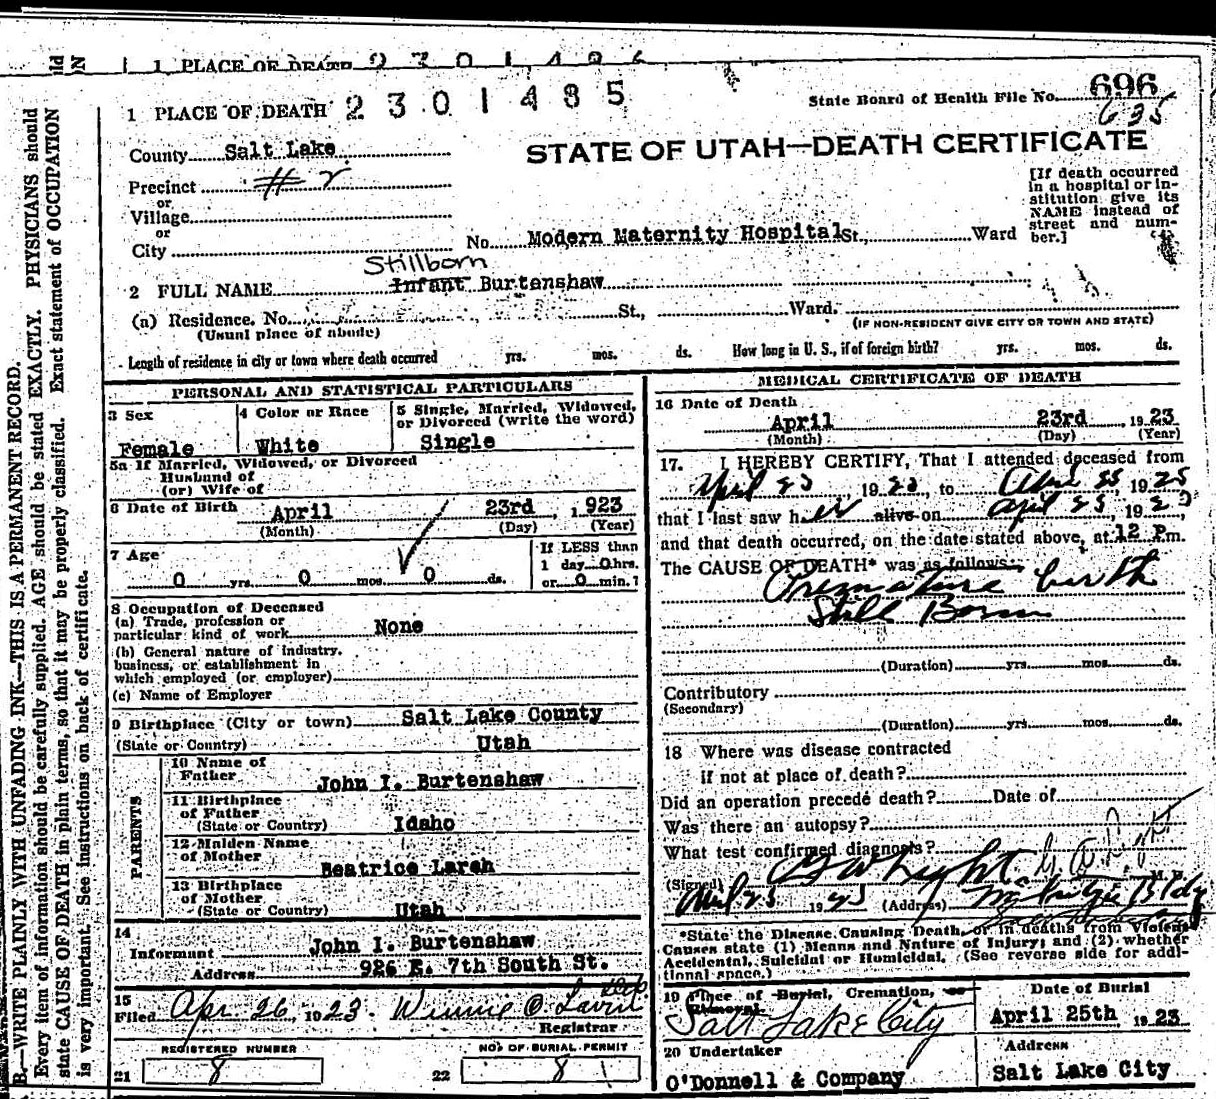 1 PLACE OF DEATH
1 PLACE OF DEATH 2301485
State Board of Health File No. 696
635
STATE OF UTAH—DEATH CERTIFICATE
County Salt Lake
Precinct # 2
or
Village
or
City
No. Modern Maternity Hospital St., Ward
[If death occurred
in a hospital or in-
stitution give its
NAME instead of
street and num-
ber.]
Stillborn
2 FULL NAME Infant Burtenshaw
(a) Residence. No. St., Ward.
(Usual place of abode)
(IF NON-RESIDENT GIVE CITY OR TOWN AND STATE)
Length of residence in city or town where death occurred yrs. mos. ds. How long in U. S., if of foreign birth? yrs. mos. ds.
PERSONAL AND STATISTICAL PARTICULARS
3 Sex
Female
4 Color or Race
White
5 Single, Married, Widowed,
or Divorced (write the word)
Single
5a If Married, Widowed, or Divorced
Husband of
(or) Wife of
6 Date of Birth April 23rd, 1923
(Month) (Day) (Year)
7 Age
0 yrs. 0 mos. 0 ds.
If LESS than
1 day 0 hrs.
or 0 min.?
8 Occupation of Deceased
(a) Trade, profession or
particular kind of work None
(b) General nature of industry,
business, or establishment in
which employed (or employer)
(c) Name of Employer
9 Birthplace (City or town) Salt Lake County
(State or Country) Utah
PARENTS
10 Name of
Father John I. Burtenshaw
11 Birthplace
of Father
(State or Country) Idaho
12 Maiden Name
of Mother
Beatrice Larsh
13 Birthplace
of Mother
(State or Country) Utah
14
Informant John I. Burtenshaw
Address 926 E. 7th South St.
15
Filed Apr 26, 1923. Winnie O. Lavin
Registrar
REGISTERED NUMBER
21 8
NO. OF BURIAL PERMIT
22 8
MEDICAL CERTIFICATE OF DEATH
16 Date of Death
April 23rd, 1923
(Month) (Day) (Year)
17. I HEREBY CERTIFY, That I attended deceased from
April 23, 1923, to April 23, 1923
that I last saw her alive on April 23, 1923,
and that death occurred, on the date stated above, at 12 P.m.
The CAUSE OF DEATH* was as follows:
Premature birth
Still Born
(Duration) yrs. mos. ds.
Contributory
(Secondary)
(Duration) yrs. mos. ds.
18 Where was disease contracted
if not at place of death?
Did an operation precede death? Date of
Was there an autopsy?
What test confirmed diagnosis?
(Signed) M. D.
April 23 1923 (Address) Bldg
*State the Disease Causing Death, or in deaths from Violent
Causes state (1) Means and Nature of Injury; and (2) whether
Accidental, Suicidal or Homicidal. (See reverse side for addi-
tional space.)
19 Place of Burial, Cremation, or
Removal
Salt Lake City
Date of Burial
April 25th 1923
20 Undertaker
O'Donnell & Company
Address
Salt Lake City
B.—WRITE PLAINLY WITH UNFADING INK—THIS IS A PERMANENT RECORD.
Every item of information should be carefully supplied. AGE should be stated EXACTLY. PHYSICIANS should
state CAUSE OF DEATH in plain terms, so that it may be properly classified. Exact statement of OCCUPATION
is very important. See instructions on back of certificate.